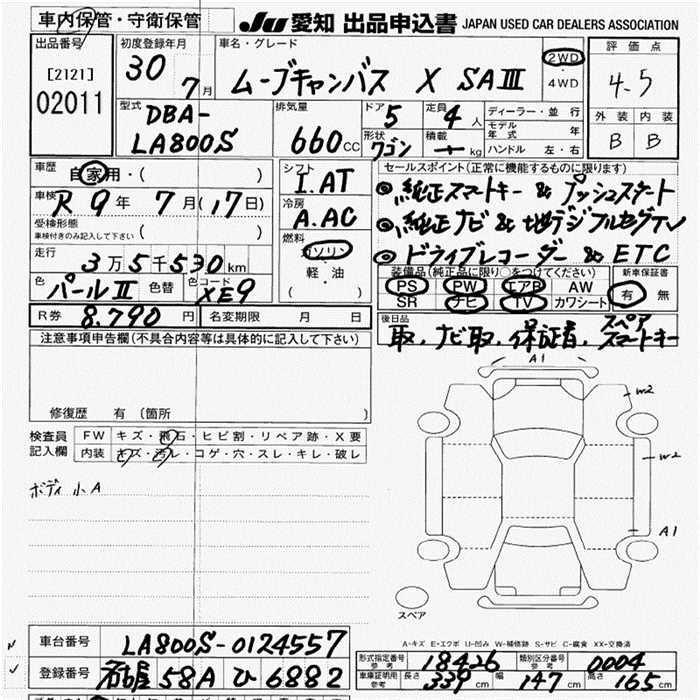 車内保管・守衛保管
JU 愛知 出品申込書 JAPAN USED CAR DEALERS ASSOCIATION
出品番号 [2121] 02011
初度登録年月 30 7月
車名・グレード ムーブキャンバス X SAⅢ
2WD・4WD
評価点 4.5
外装 内装
B B
型式 DBA-LA800S
排気量 660cc
ドア 5
定員 4人
形状 ワゴン
積載 kg
ディーラー・並行
モデル年式 年
ハンドル 左・右
車歴 自家用・( )
車検 R9年 7月(17日)
受検形態 ( )
車検付きのみ記入して下さい
走行 3万5千530km
色 パールⅡ 色替 色コード XE9
シフト I.AT
冷房 A.AC
燃料 ガソリン・軽・油
( )
セールスポイント(正常に機能するものに限ります)
◎純正スマートキー & プッシュスタート
◎純正ナビ & 地デジフルセグTV
◎ドライブレコーダー & ETC
装備品(純正品に限り○をつけてください)
PS PW エアB AW
SR ナビ TV カワシート
新車保証書 有 無
R券 8,790円
名変期限 月 日
後日品 取、ナビ取、保証書、スペアスマートキー
注意事項申告欄(不具合内容等は具体的に記入して下さい)
修復歴 有 (箇所 )
検査員記入欄
FW キズ・飛石・ヒビ割・リペア跡・X要
内装 キズ・汚レ・コゲ・穴・スレ・キレ・破レ
ボディ小A
A1
W2
W2
A1
スペア
A-キズ E-エクボ U-凹み W-補修跡 S-サビ C-腐食 XX-交換済
車台番号 LA800S-0124557
登録番号 名古屋 58A ひ 6882
形式指定番号 参考 18426
類別区分番号 参考 0004
車庫証明用 参考 長さ 339cm 幅 147cm 高さ 165cm